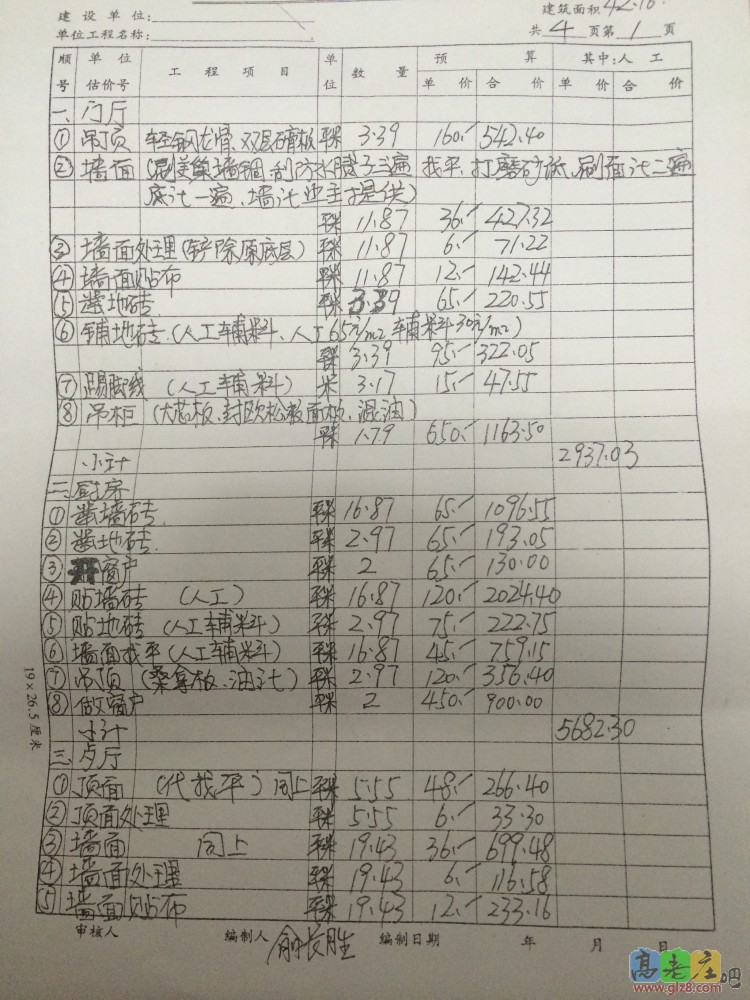 建设单位:
建筑面积42.16
单位工程名称:
共4页第1页
顺号 单位估价号 工程项目 单位 数量 预算 其中:人工
单价 合价 单价 合价
一、门厅
① 吊顶 轻钢龙骨、双层石膏板 平米 3.39 160.- 542.40
② 墙面(刷美巢墙锢、刮防水腻子三遍 找平、打磨砂纸、刷面漆二遍
底漆一遍、墙漆业主提供)
平米 11.87 36.- 427.32
③ 墙面处理(铲除原底层) 平米 11.87 6.- 71.22
④ 墙面贴布 平米 11.87 12.- 142.44
⑤ 凿地砖 平米 3.39 65.- 220.55
⑥ 铺地砖(人工辅料、人工65元/m2 辅料30元/m2)
平米 3.39 95.- 322.05
⑦ 踢脚线(人工辅料) 米 3.17 15.- 47.55
⑧ 吊柜(大芯板、封欧松板面板、混油)
平米 1.79 650.- 1163.50
小计 2937.03
二、厨房
① 凿墙砖 平米 16.87 65.- 1096.55
② 凿地砖 平米 2.97 65.- 193.05
③ 窗户 平米 2 65.- 130.00
④ 贴墙砖(人工) 平米 16.87 120.- 2024.40
⑤ 贴地砖(人工辅料) 平米 2.97 75.- 222.75
⑥ 墙面找平(人工辅料) 平米 16.87 45.- 759.15
⑦ 吊顶(桑拿板、油漆) 平米 2.97 120.- 356.40
⑧ 做窗户 平米 2 450.- 900.00
小计 5682.30
三、歺厅
① 顶面(代找平)同上 平米 5.55 48.- 266.40
② 顶面处理 平米 5.55 6.- 33.30
③ 墙面 同上 平米 19.43 36.- 699.48
④ 墙面处理 平米 19.43 6.- 116.58
⑤ 墙面贴布 平米 19.43 12.- 233.16
审核人 编制人 俞长胜 编制日期 年 月 日
19×26.5厘米
高老庄吧
www.glz8.com